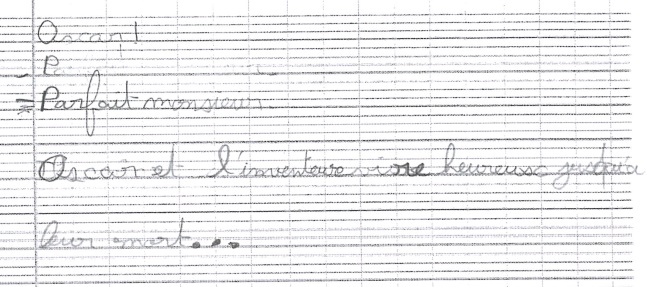 Oscar!
_ P
= Parfait monsieur.
Oscar et l'inventeure vive heureuse jusqu'a
leur mort...